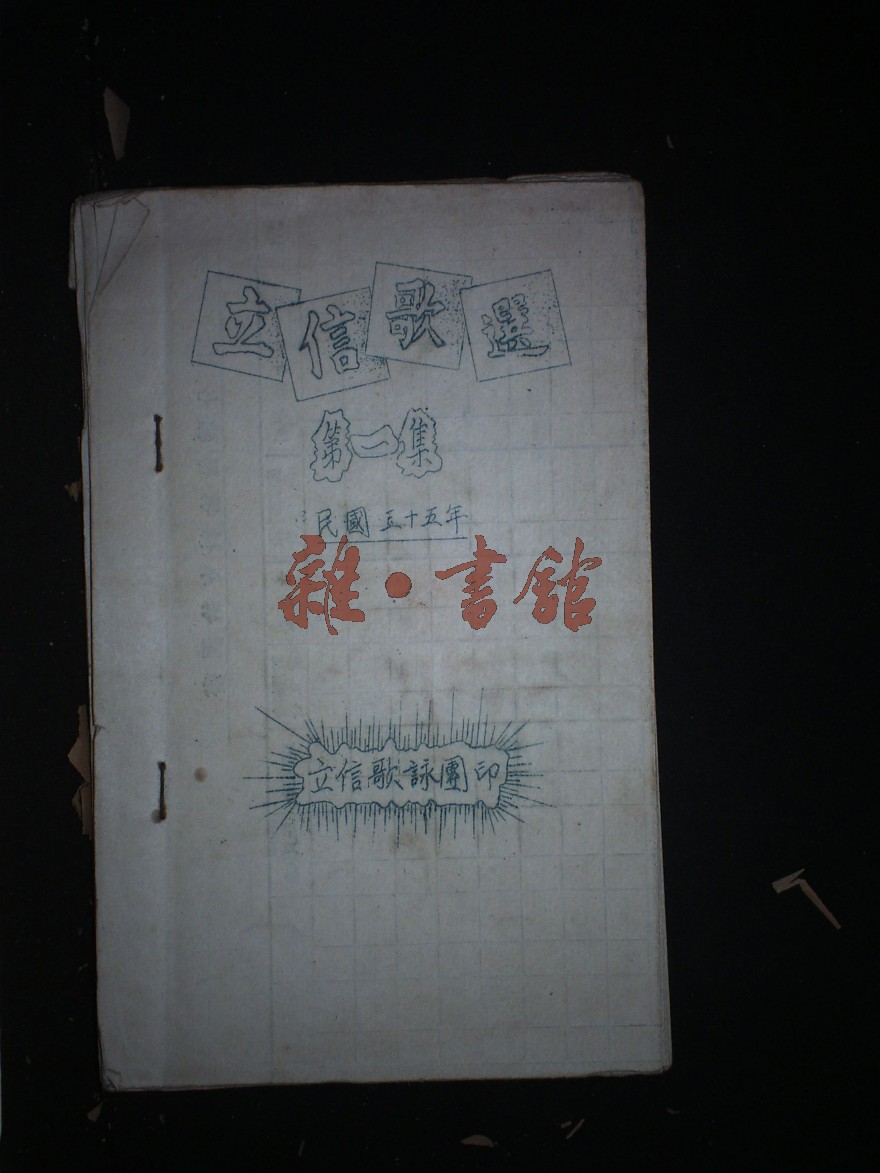 立信歌選
第二集
民國三十五年
雜·書館
立信歌詠團印